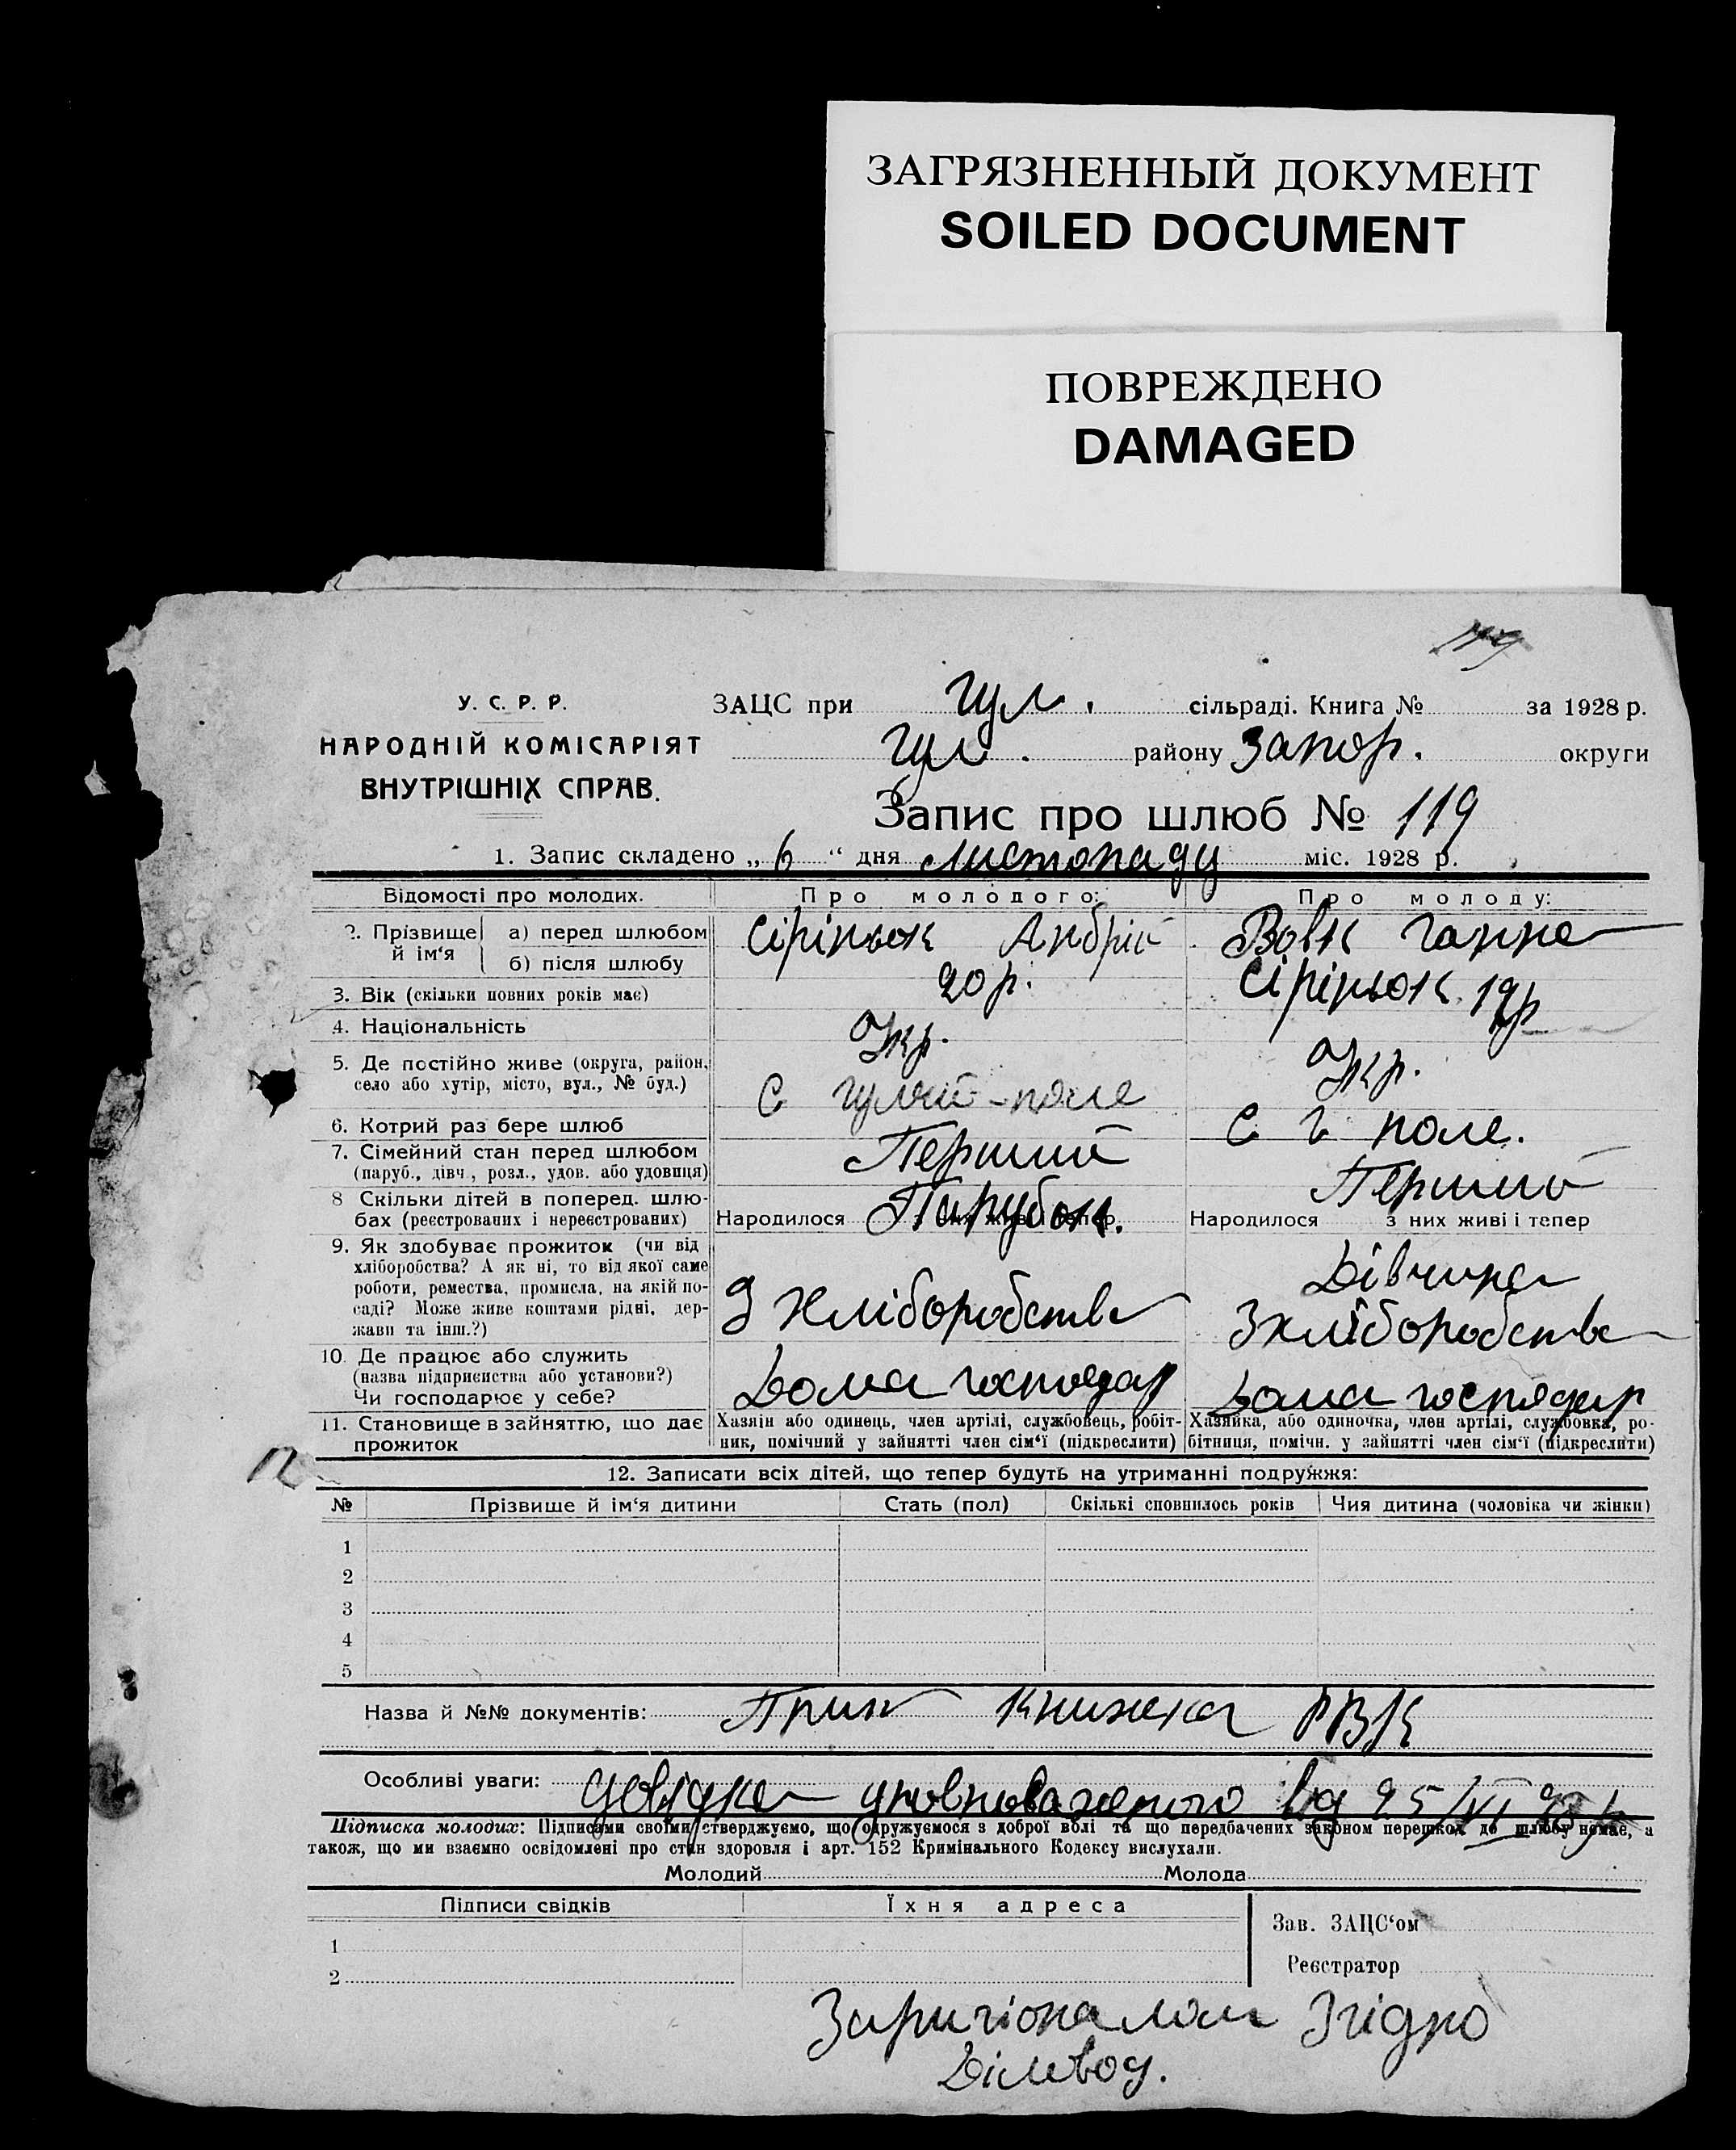 ЗАГРЯЗНЕННЫЙ ДОКУМЕНТ
SOILED DOCUMENT
ПОВРЕЖДЕНО
DAMAGED
119
У. С. Р. Р.
НАРОДНІЙ КОМІСАРІЯТ
ВНУТРІШНІХ СПРАВ.
ЗАЦС при Гул. сільраді. Книга № за 1928 р.
Гул. району Запор. округи
Запис про шлюб № 119
1. Запис складено „ 6 “ дня листопаду міс. 1928 р.
Відомості про молодих. Про молодого: Про молоду:
2. Прізвище й ім‘я а) перед шлюбом Сіріньок Андрій Вовк Ганна
б) після шлюбу Сіріньок
3. Вік (скільки повних років має) 20 р. 19 р
4. Національність Укр. Укр.
5. Де постійно живе (округа, район,
село або хутір, місто, вул., № буд.) С Гуляй-поле С Г поле.
6. Котрий раз бере шлюб Перший Перший
7. Сімейний стан перед шлюбом
(паруб., дівч., розл., удов. або удовиця) Парубок. Дівчина
8 Скільки дітей в поперед. шлю-
бах (реєстрованих і нереєстрованих) Народилося з них живі і тепер Народилося з них живі і тепер
9. Як здобуває прожиток (чи від
хліборобства? А як ні, то від якої саме
роботи, ремества, промисла, на якій по-
саді? Може живе коштами рідні, дер-
жави та інш.?) З хліборобства З хліборобства
10. Де працює або служить
(назва підприємства або установи?)
Чи господарює у себе? Дома господар Дома господар
11. Становище в зайняттю, що дає
прожиток
Хазяїн або одинець, член артілі, службовець, робіт-
ник, помічний у зайнятті член сім‘ї (підкреслити)
Хазяйка, або одиночка, член артілі, службовка, ро-
бітниця, помічн. у зайнятті член сім‘ї (підкреслити)
12. Записати всіх дітей, що тепер будуть на утриманні подружжя:
№ Прізвище й ім‘я дитини Стать (пол) Скількі сповнилось років Чия дитина (чоловіка чи жінки)
1
2
3
4
5
Назва й №№ документів: Прип книжка РВК
Особливі уваги: Довідка уповноваженого від 25/VI
Підписка молодих: Підписами своїми стверджуємо, що одружуємося з доброї волі та що передбачених законом перешкод до шлюбу немає, а
також, що ми взаємно освідомлені про стан здоровля і арт. 152 Кримінального Кодексу вислухали.
Молодий Молода
Підписи свідків Їхня адреса
1
2
Зав. ЗАЦС‘ом
Реєстратор
Зоригіоналом Згідно
Діловод.